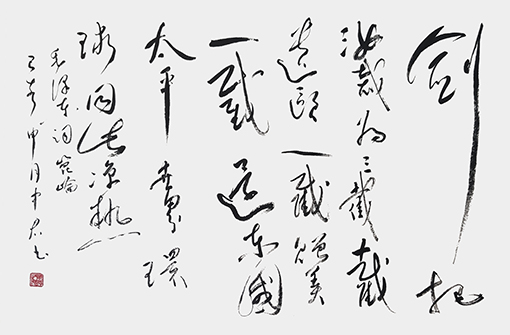 剑把
汝裁为三截一截
遗欧一截赠美
一截还东国
太平世界环
球同此凉热
毛泽东词崑崙
月中书